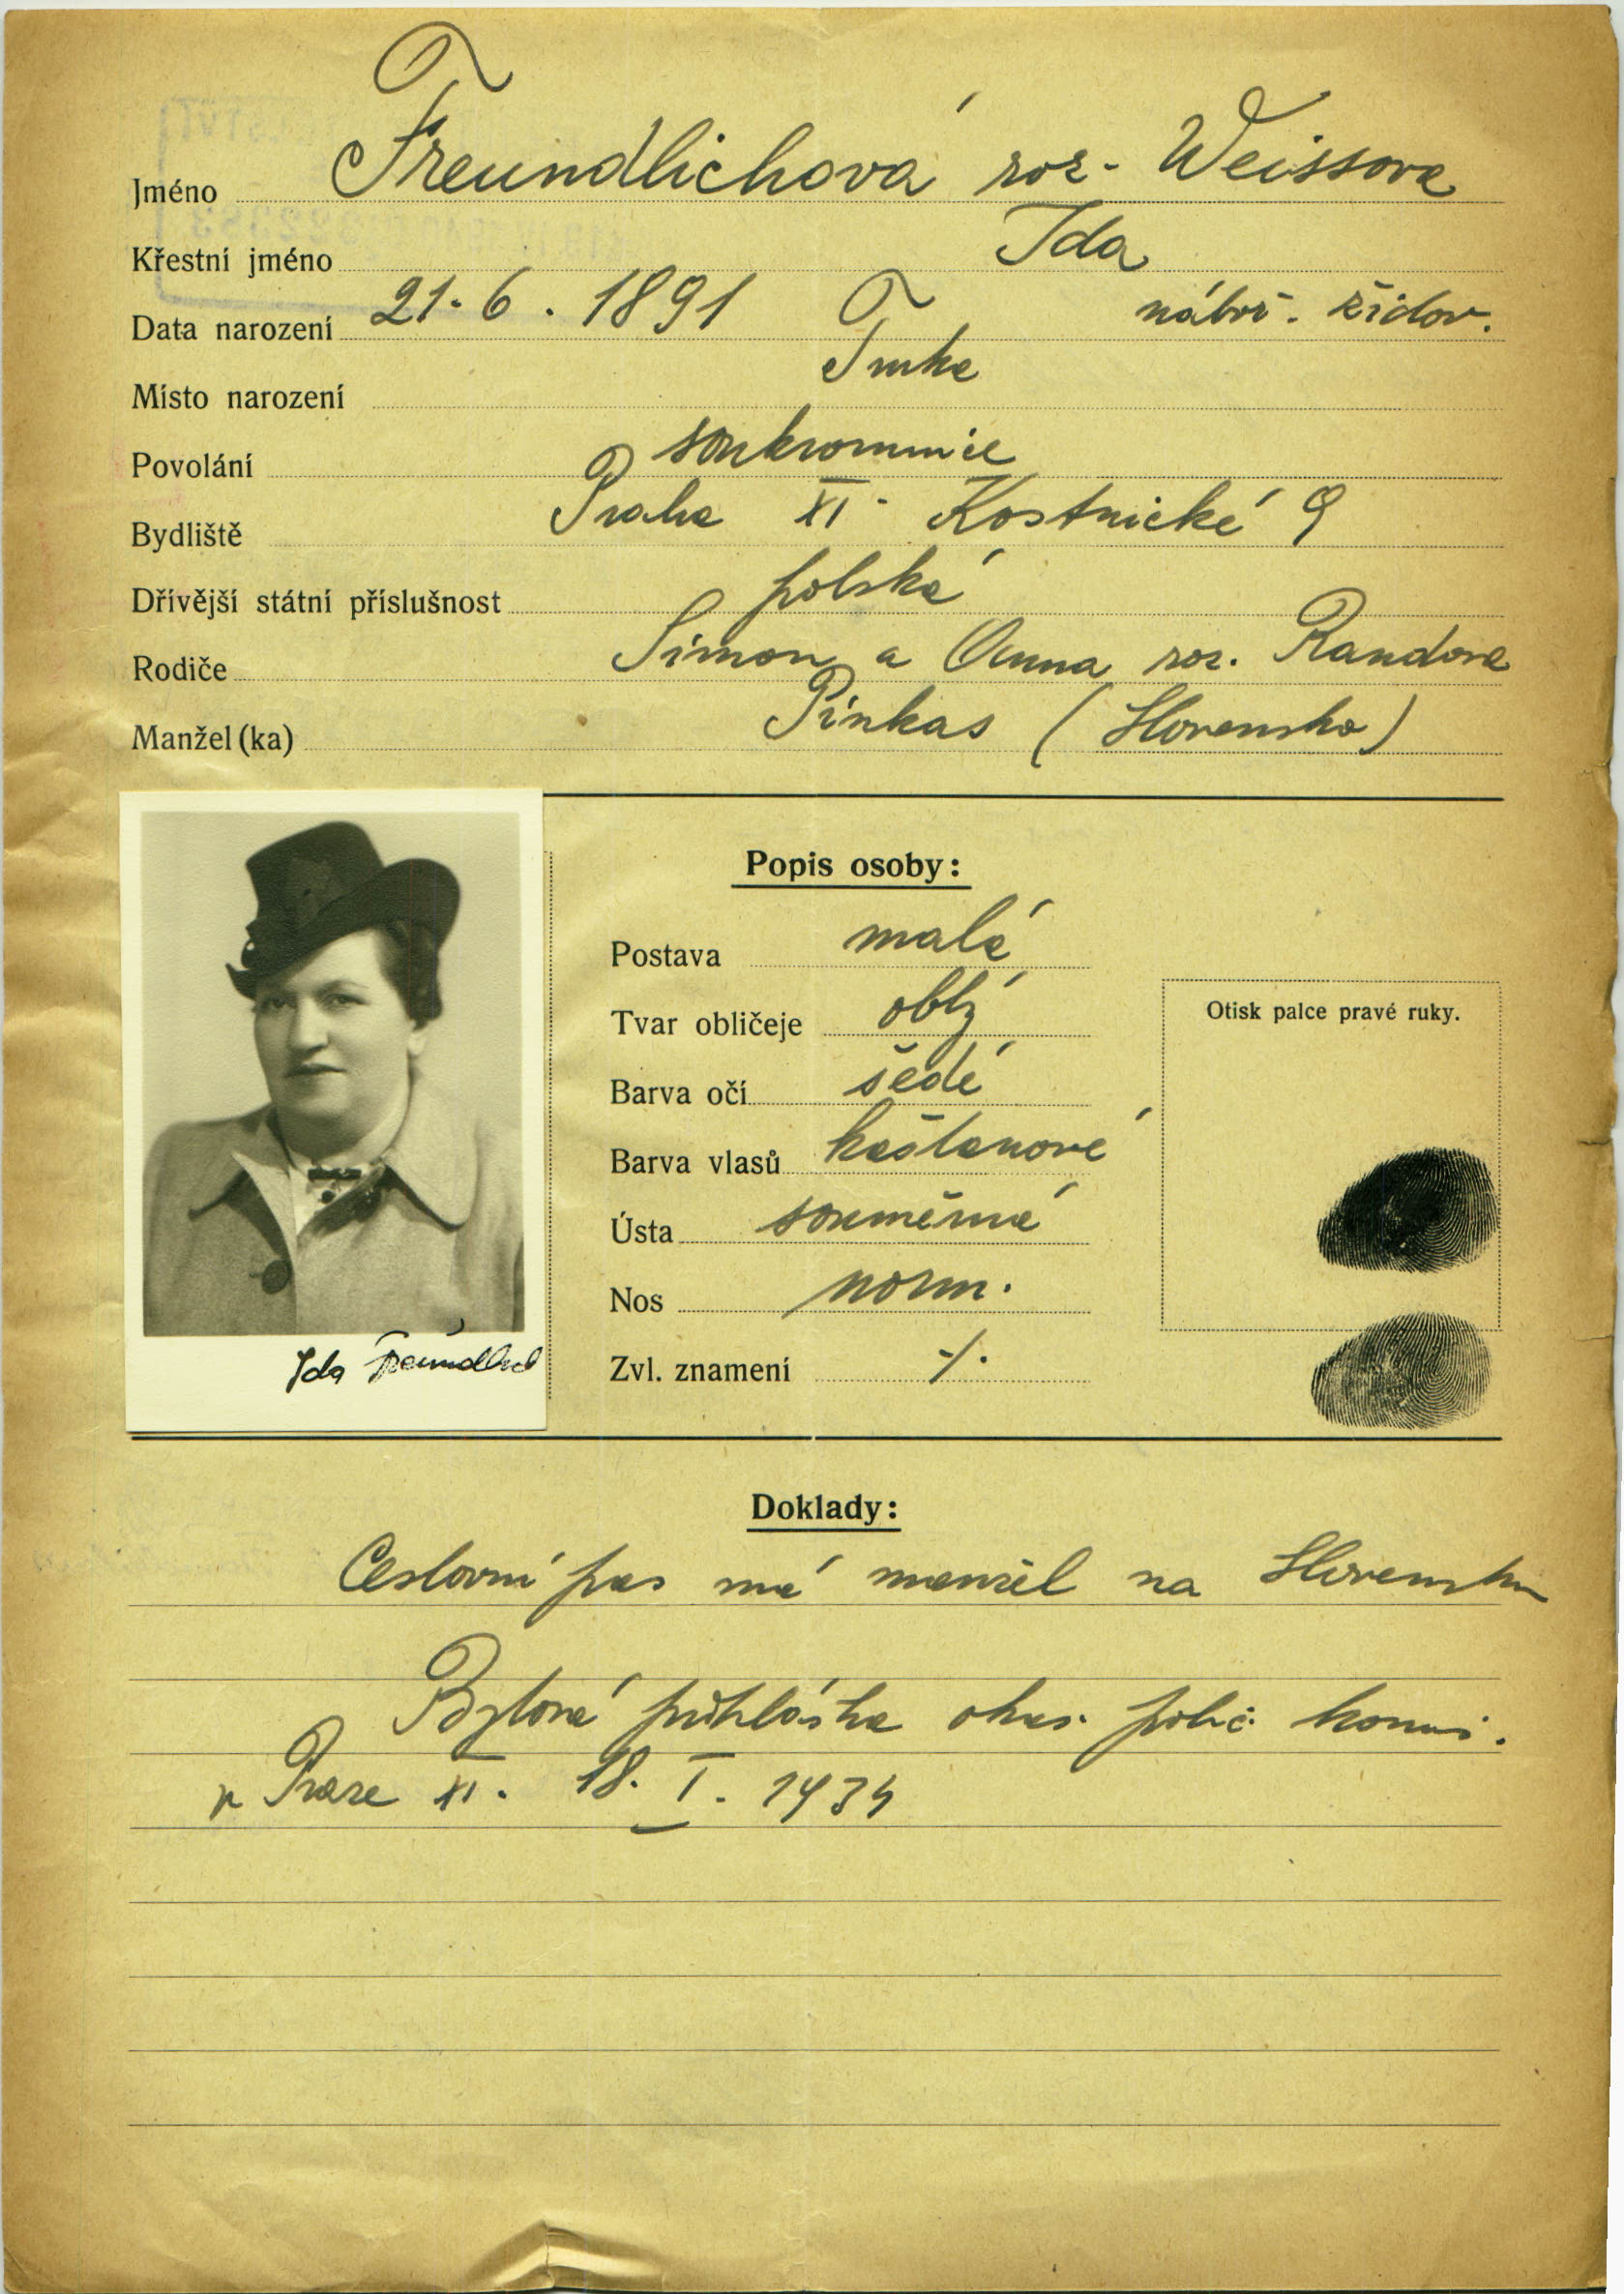 Jméno Freundlichová roz. Weissova
Křestní jméno Ida
Data narození 21. 6. 1891 nábož. židov.
Místo narození Turka
Povolání soukromnice
Bydliště Praha XI. Kostnické 9
Dřívější státní příslušnost polská
Rodiče Simon a Anna roz. Randova
Manžel(ka) Pinkas (Slovensko)
Popis osoby:
Postava malá
Tvar obličeje oblý
Barva očí šedé
Barva vlasů kaštanové
Ústa souměrná
Nos norm.
Zvl. znamení -/.
Otisk palce pravé ruky.
Ida Freundlich
Doklady:
Cestovní pas má manžel na Slovensku
Bytová přihláška okres. polic. komis.
v Praze XI. 18. I. 1934